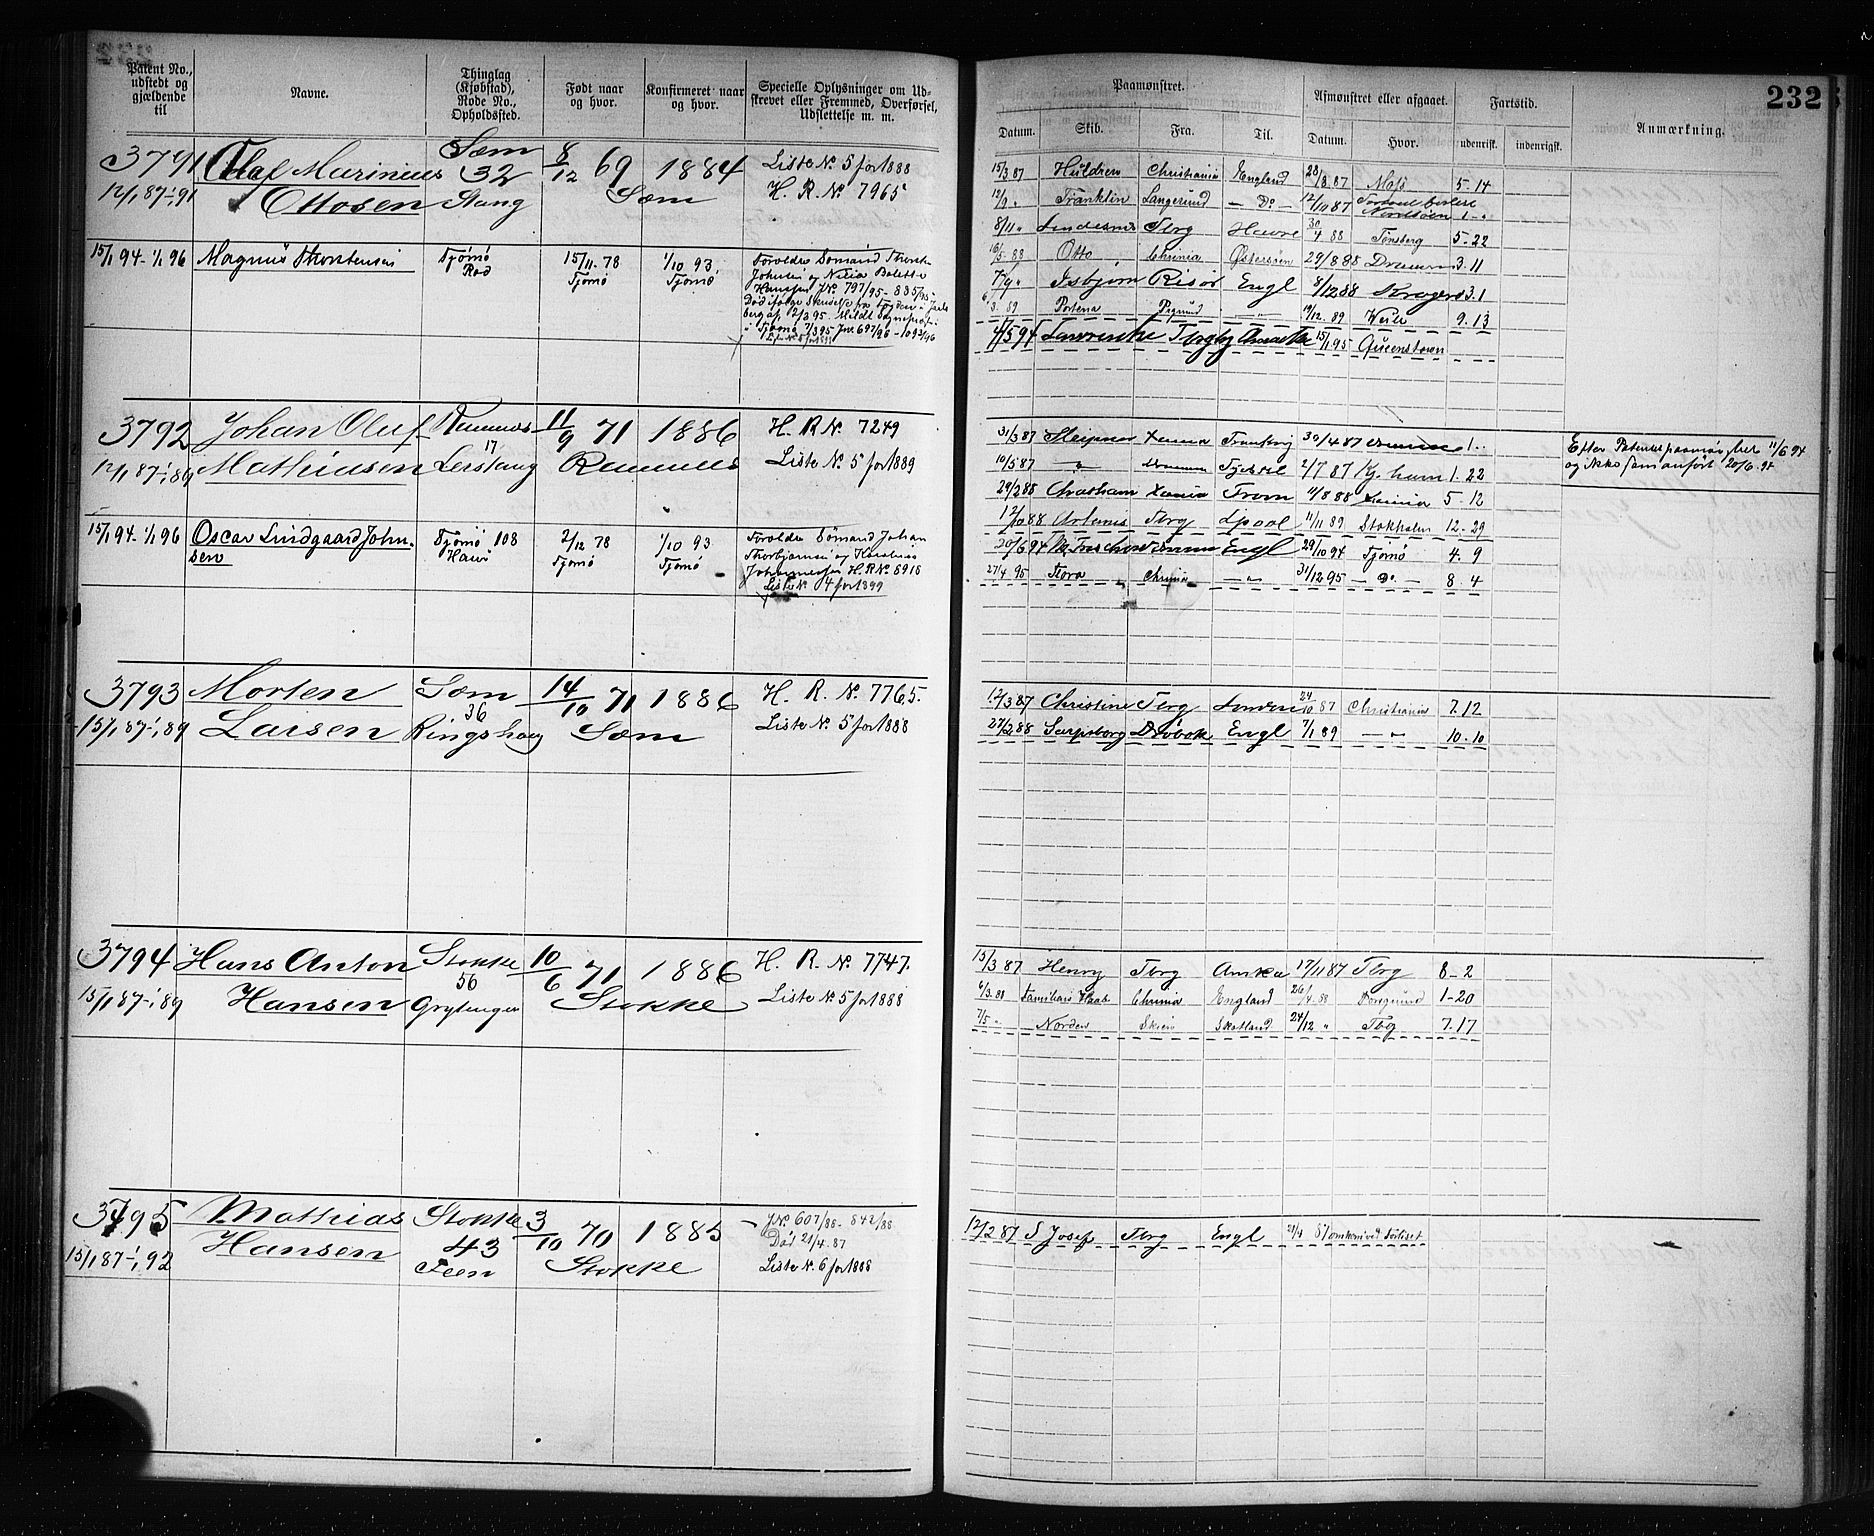 232
Patent No., udstedt og gjældende til
Navne.
Thinglag (Kjøbstad), Rode No., Opholdssted.
Født naar og hvor.
Konfirmeret naar og hvor.
Specielle Oplysninger om Udskrevet eller Fremmed, Overførsel, Udslettelse m. m.
Paamønstret.
Afmønstret eller afgaaet.
Fartstid.
Anmærkning.
Datum. Skib. Fra. Til. Datum. Hvor. udenrigsk. indenrigsk.
3791 Olaf Marinius Sæm 8/12 69 1884 Liste No 5 for 1888
12/1 87-1/1 91 Ottosen 32 Stang Sæm H. R. No 7965
15/3 87 Huldren Christiania England 28/8 87 Moss 5-14
12/9 " Franklin Langesund — Do 12/10 87 Nordsøen
8/11 " Lindesnes Tbrg Havre 30/4 88 Tønsberg 5-22
16/5 88 Otto Chrania Østersøen 29/8 88 Drammen 3.11
Isbjørn Risør Engl 8/12 88 Kragerø 3.1
6/3. 89 — " — 19/12. 89 9.13
15/1 94-1/1 96 Magnus Thorstensen Tjømø Rød 15/11. 78 Tjømø 1/10 93. Tjømø Forældre Sømand Thorst.
Johnsen og
Hanssen J.No 797/95 - 835/95
12/3 95.
Tjømø 7/3 95 Jno 697/96 - 1093/96
Liste No 5 for 1899
4/5 94 Laurvik Tbrg Amerika 15/1 95 Queenstown
3792 Johan Oluf Ramnes 11/9 71 1886 H. R No. 7249
12/1 87-1/1 89 Mathiasen 17 Lerstang Ramnes Liste No. 5 for 1889
31/3 87 Sleipner Xania 30/4 87 Drammen 1..
10/5 87 — " — Drammen 2/7 87 Kj. havn 1-22
29/2 88 Xania 11/8 88 Xania 5-12
12/10 88 Artemis Tbrg Lpool 11/11 89 Stokholm 12-29
Efter Patentets paamønstret 11/6 94
og ikke som anført 20/6 94
15/1 94-1/1 96 Oscar Lindgaard Johnsen Tjømø 108 2/12 78 Tjømø 1/10 93 Tjømø Forældre Sømand Johan
Thorbjørnsen og
Johannessen H.R No 6916
Liste No 4 for 1899
20/6 94 Drammen Engl 29/10 94 Tjømø 4. 9
27/4 95 Flora Chrania — " — 31/12 95 — Do. — 8.4
3793 Morten Sæm 14/10 71 1886 H. R. No. 7765.
15/1 87-1/1 89 Larsen 36 Ringshaug Sæm Liste No 5 for 1888
12/3 87 Christine Tbrg London 24/10 87 Christiania 7.12
27/2 88 Sarpsborg Drøbak Engl 7/1 89 — " — 10.10
3794 Hans Anton Stokke 10/6 71 1886 H. R. No. 7747.
15/1 87-1/1 89 Hansen 56 Grytnugen Stokke Liste No 5 for 1888
15/3 87 Henry Tbrg Amka 17/11 87 Tbrg 8-2
6/3. 88 Familiens Haab Chrania England 26/4. 88 Porsgrund 1-20
7/5 " Norden Skien Skotland 24/12 " Tbg 7.17
3795 Mathias Stokke 3/10 70 1885 J No 607/88 - 842/88
15/1 87-1/1 92 Hansen 43 Feen Stokke Død 21/4. 87
Liste No. 6 for 1888
12/2 87 S Josef Tbrg Engl 21/4 87 omkom ved Forliset